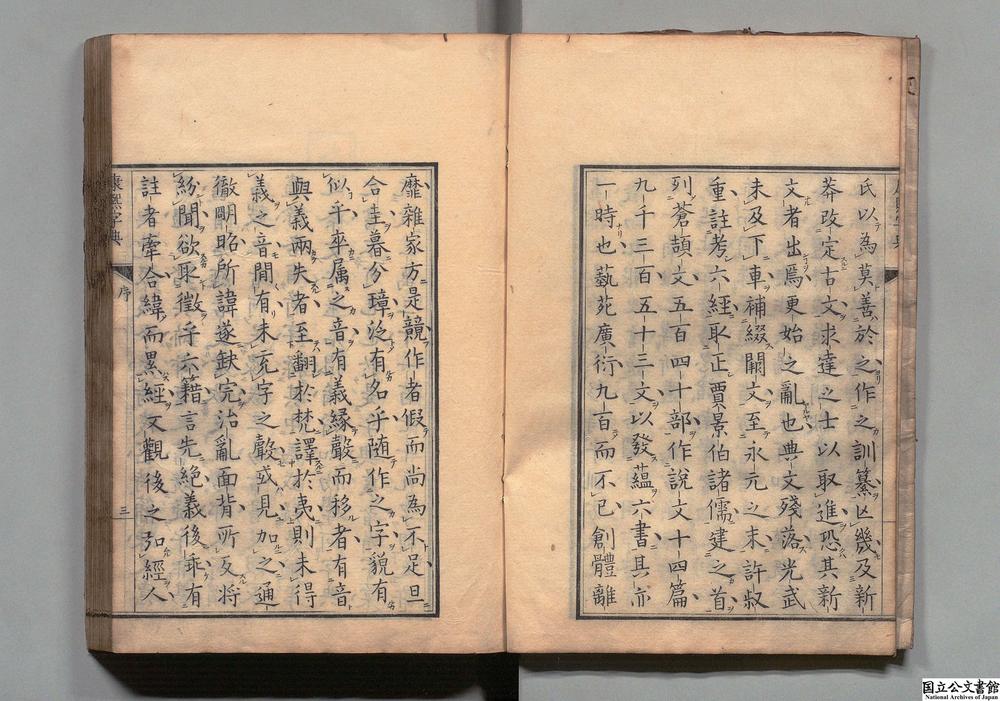 氏以為莫善於之作之訓纂亡幾及新
莽改定古文求達之士以取進恐其新
文者出焉更始之亂也典文殘落光武
未及下車補綴闕文至永元之末許叔
重註考六經取正賈景伯諸儒建之首
列蒼頡文五百四十部作說文十四篇
九千三百五十三文以發蘊六書其亦
一時也蓺苑廣衍九百而不已創體離
靡雜家方是競作者假而尚為不足旦
合圭暮分璋泛有名乎随作之字貌有
似乎率属之音有義縁聲而移者有音
與義兩失者至翻於梵譯於夷則未得
義之音間有未充字之聲或見加之通
徹明昭所諱遂缺完治亂面背所及将
紛聞欲取徵乎六籍言先絶義後乖有
註者牽合緯而累經又觀後之弘經人
康熙字典
序
三
国立公文書館
National Archives of Japan